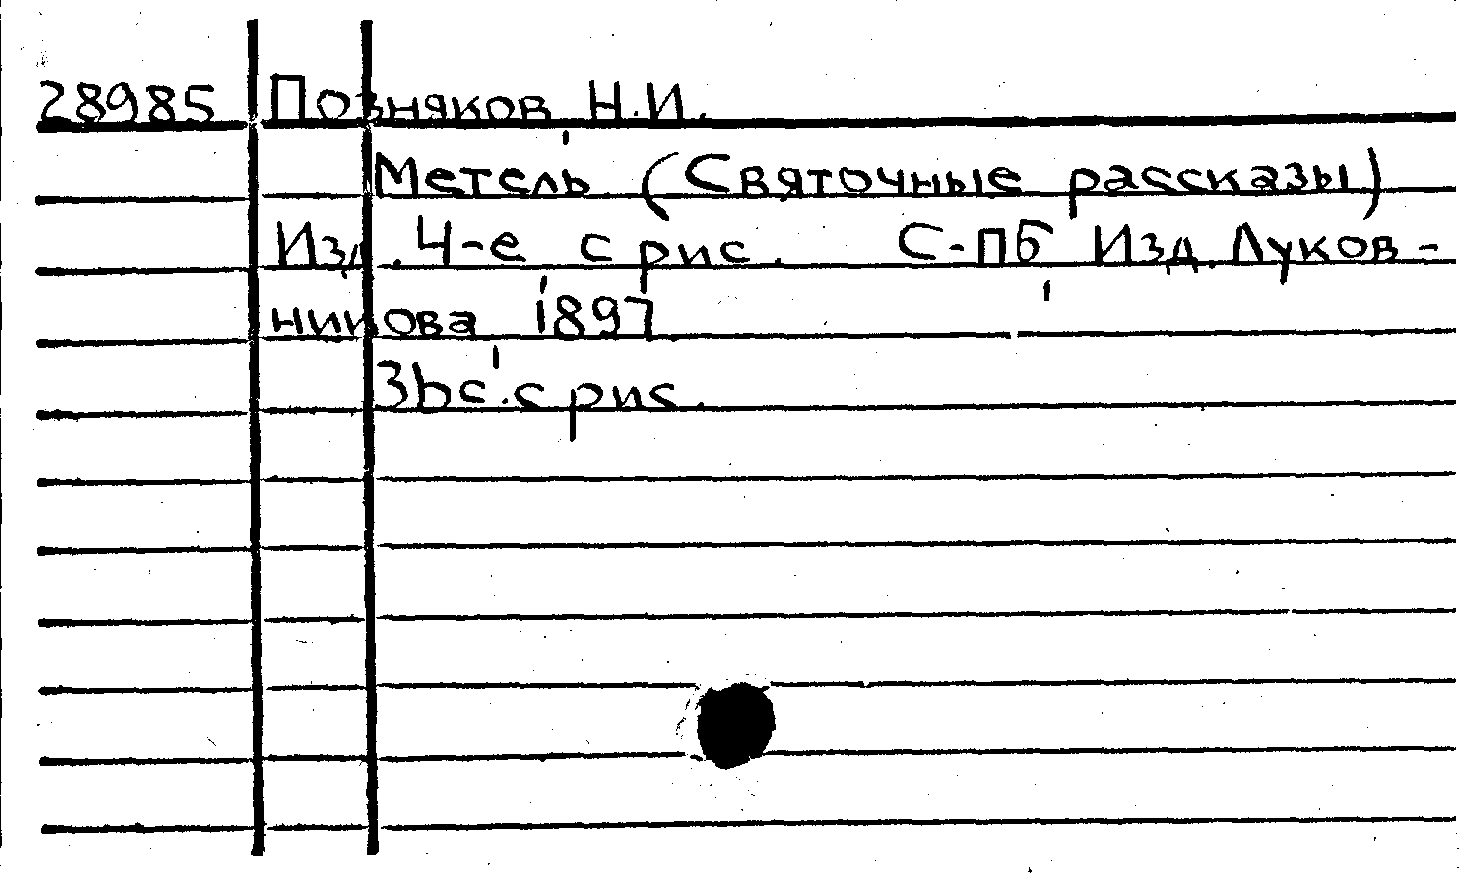 28985 Позняков, Н.И.
Метель. (Святочные рассказы)
Изд. 4-е с рис. С-пб, Изд. Луков-
никова, 1897
36с. с рис.